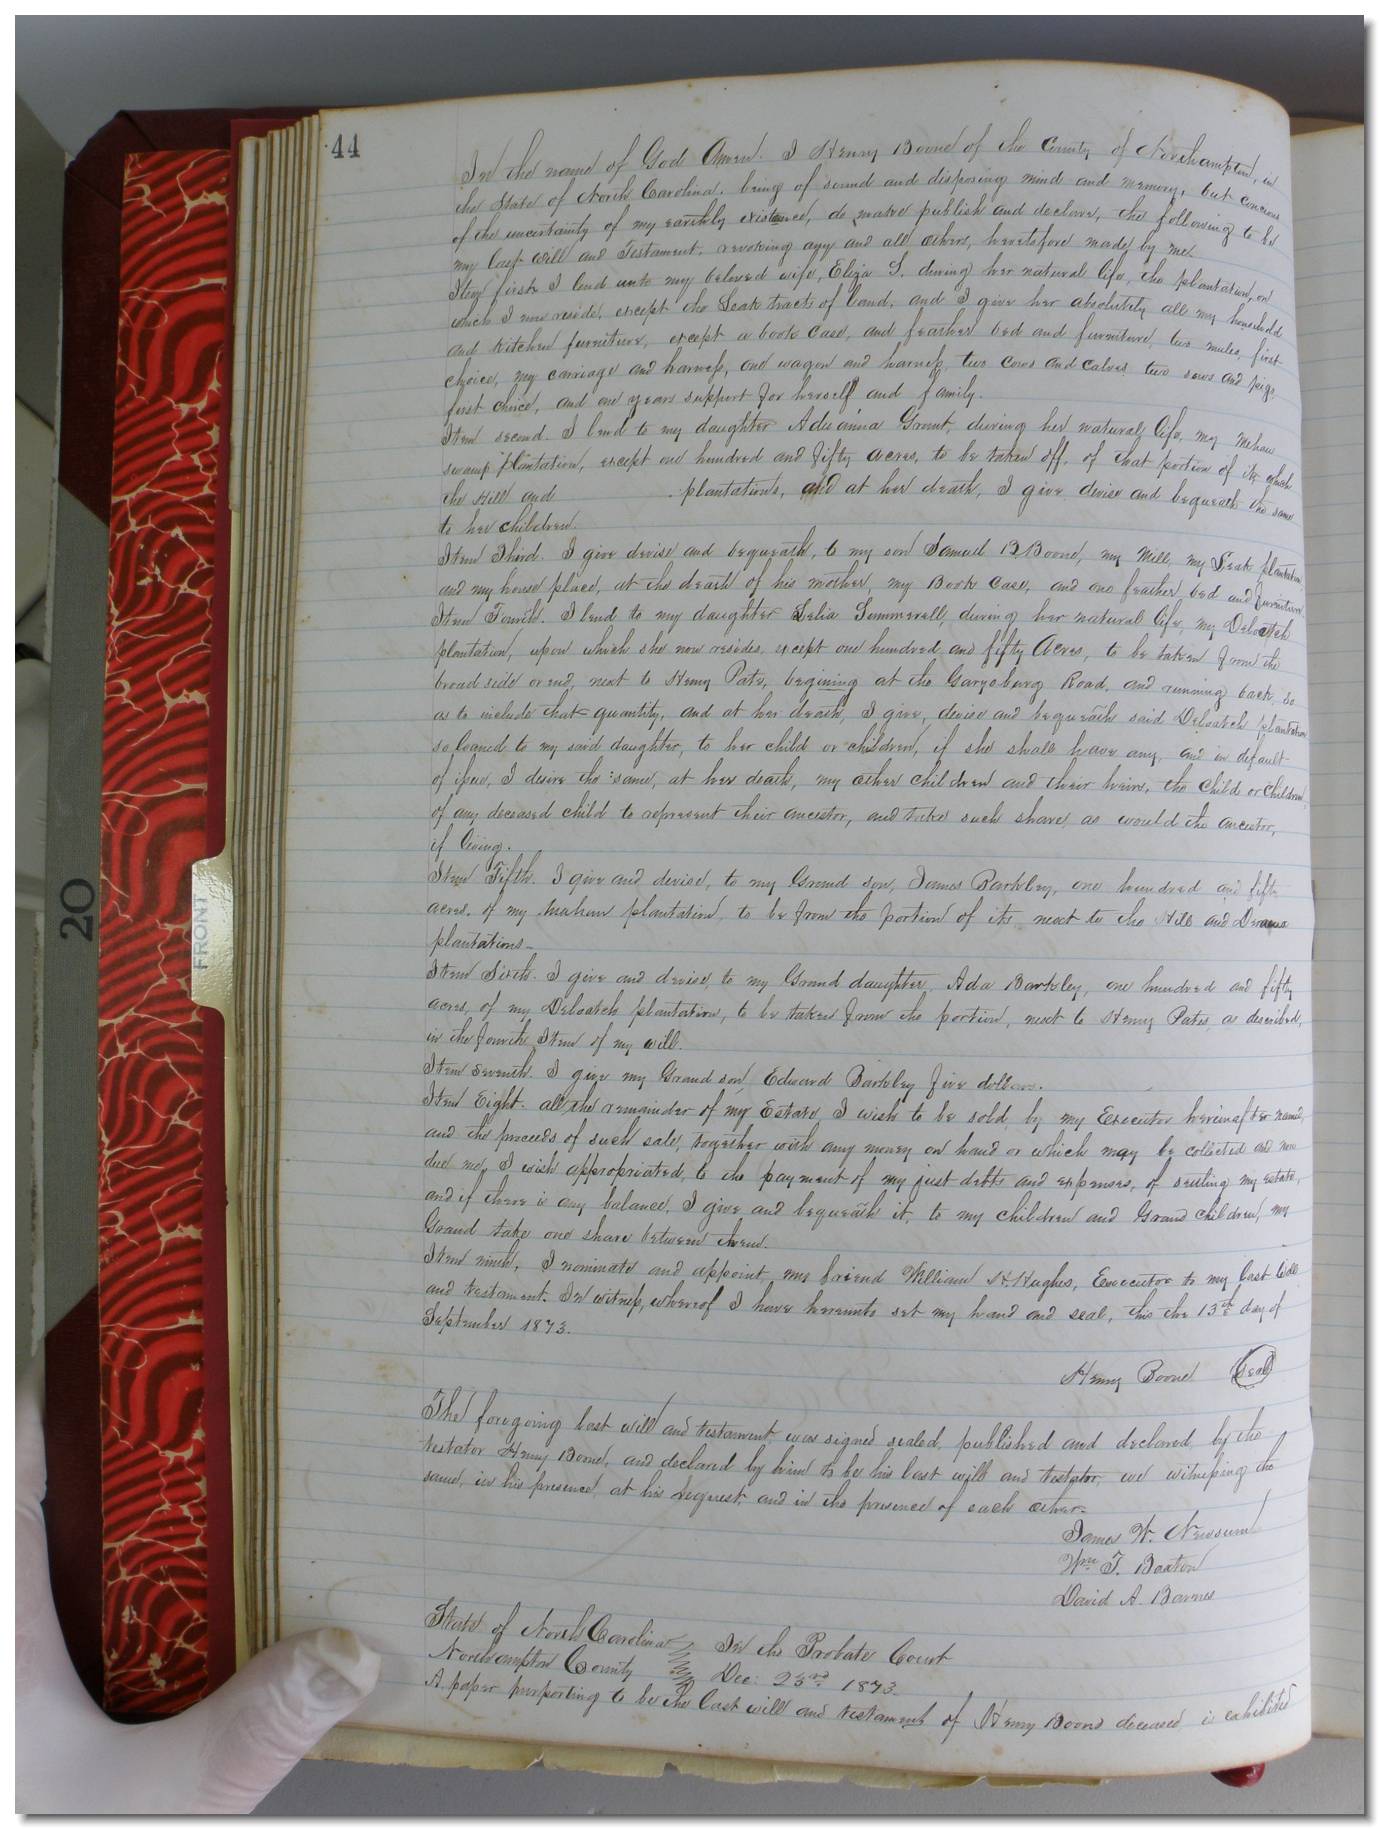 44
In the name of God Amen. I Henry Boone of the County of Northampton, in
the State of North Carolina, being of sound and disposing mind and memory, but concious
of the uncertainty of my earthly existence, do make publish and declare, the following to be
my last will and Testament, revoking any and all others, heretofore made by me.
Item first I lend unto my beloved wife, Eliza S. during her natural life, the plantation, on
which I now reside, except the Leak tract of land, and I give her absolutely all my household
and kitchen furniture, except a book case, and feather bed and furniture, two mules, first
choice, my carriage and harness, one wagon and harness, two cows and calves two sows and pigs
first choice, and one years support for herself and family.
Item second. I lend to my daughter Aduainna Grant, during her natural life, my Mehan
swamp plantation, except one hundred and fifty acres, to be taken off, of that portion of it which
the Hill and plantations, and at her death, I give devise and bequeath the same
to her children.
Item Third. I give devise and bequeath, to my son Samuel B Boone, my Mill, my Leak plantation
and my house place, at the death of his mother, my Book Case, and one feather bed and furniture.
Item Fourth. I lend to my daughter Delia Summerell, during her natural life, my Deloatch
plantation, upon which she now resides, except one hundred and fifty Acres, to be taken from the
broad side or end, next to Henry Pate, begining at the Garysburg Road, and running back, so
as to include that quantity, and at her death, I give, devise and bequeath said Deloatch plantation
so loaned to my said daughter, to her child or children, if she shall have any, and in default
of issue, I desire the same, at her death, my other children and their heirs, the child or children,
of any deceased child to represent their ancestor, and take such share, as would the ancestor,
if living.
Item Fifth. I give and devise, to my Grand son, James Barkley, one hundred and fifty
acres, of my Mahan plantation, to be from the portion of its next to the Hill and
plantations_
Item Sixth. I give and devise, to my Grand daughter, Ada Barkley, one hundred and fifty
acres, of my Deloatch plantation, to be taken from the portion, next to Henry Pates, as described,
in the fourth Item of my will.
Item Seventh. I give my Grand son, Edward Barkley five dollars.
Item Eight. all the remainder of my Estate I wish to be sold, by my Executor hereinafter named,
and the proceeds of such sale, together with any money on hand or which may be collected and now
due me, I wish appropriated, to the payment of my just debts and expenses, of settling my estate,
and if there is any balance, I give and bequeath it, to my children and Grand children, my
Grand take one share between them.
Item ninth, I nominate and appoint, my friend William H. Hughes, Executor to my last Will
and testament. In witness, whereof I have hereunto set my hand and seal, this the 13th day of
September 1873.
Henry Boone Seal
The foregoing last will and testament was signed sealed, published and declared, by the
testator Henry Boone, and declared by him to be his last will and testator, we witnessing the
same, in his presence, at his request, and in the presence of each other.
James W. Newsum
Wm T. Boxton
David A. Barnes
State of North Carolina In the Probate Court
Northampton County Dec: 23rd 1873.
A paper purporting to be the last will and testament of Henry Boone deceased, is exhibited
20
FRONT